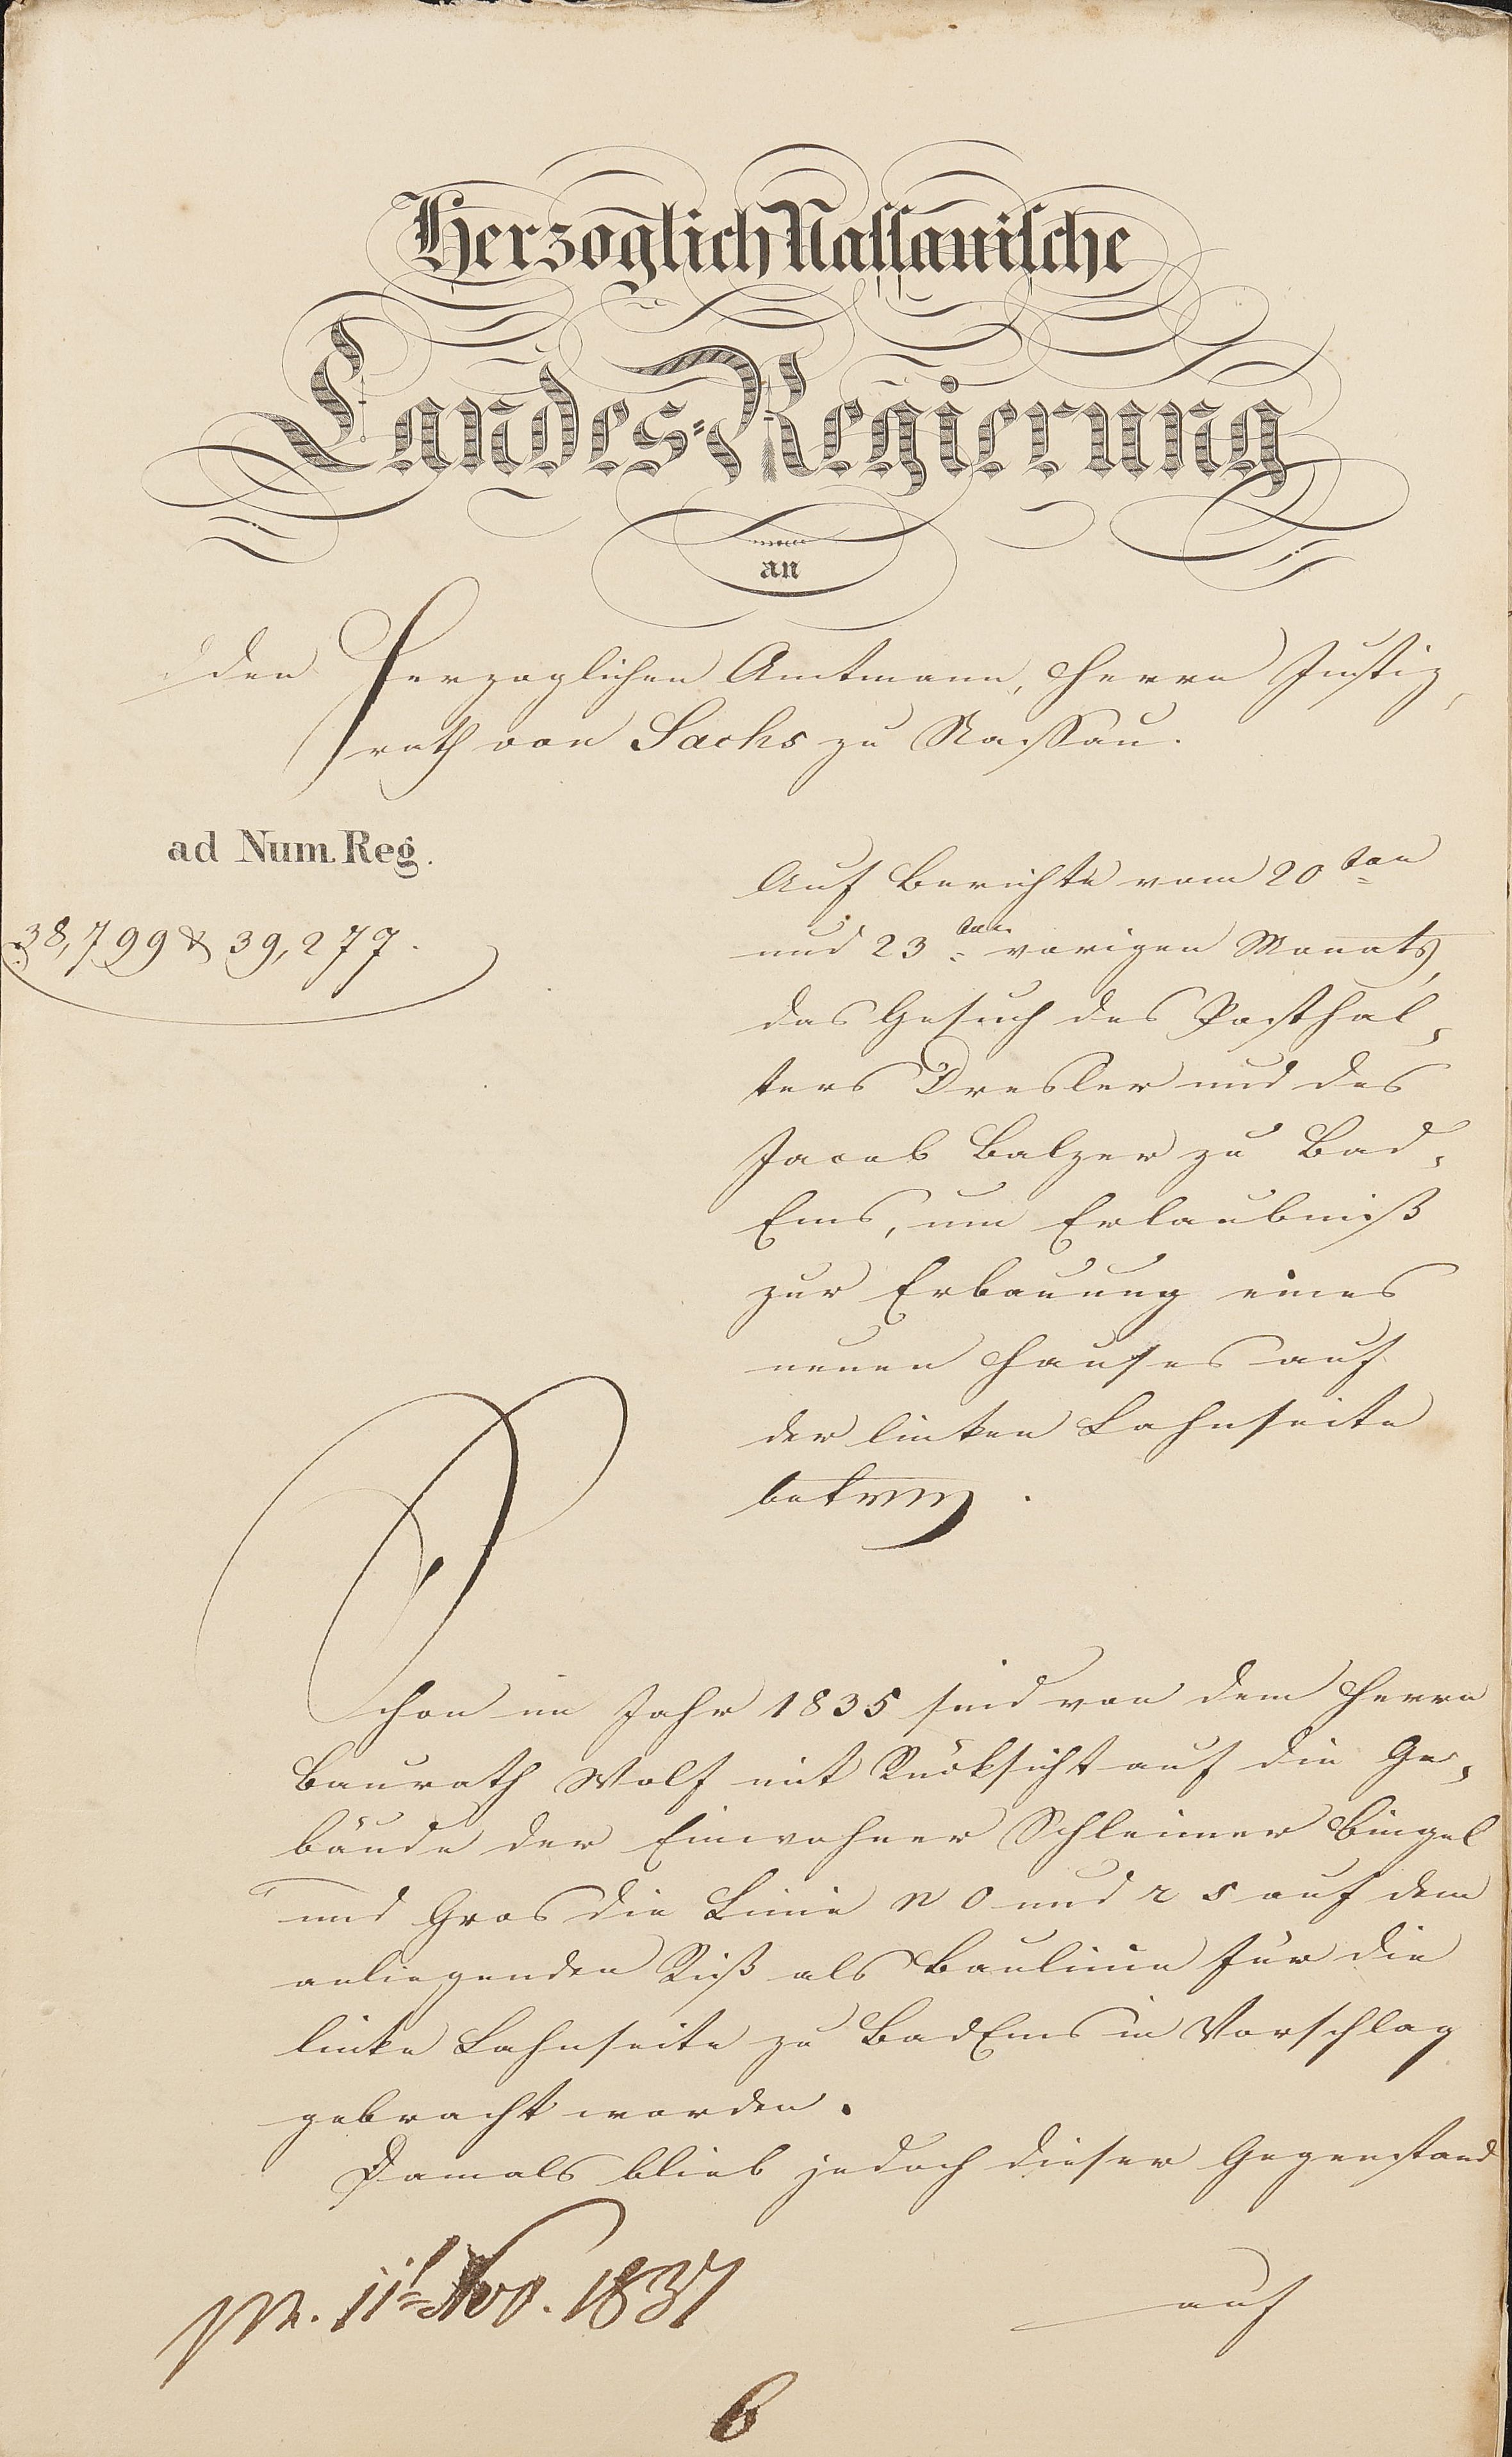 Herzoglich Nassauische
Landes-Regierung
an
den Herzoglichen Amtmann, Herrn Justiz,
rath von Sachs zu Nassau.
ad Num. Reg.
38,799 & 39,277.
Auf Berichte vom 20ten
und 23ten vorigen Monats,
das Gesuch des Posthal,
ters Dresler und des
Jacob Balzer zu Bad,
Ems, um Erlaubniß
zur Erbauung eines
neuen Hauses auf
der linken Lahnseite
betr.
Schon im Jahr 1835 sind von dem Herrn
Baurath Wolf mit Rücksicht auf die Ge,
bäude der Einwohner Schleimer Bingel
und Gros die Linie n o und r s auf dem
anliegenden Riß als Baulinie für die
linke Lahnseite zu Bad Ems in Vorschlag
gebracht worden.
Damals blieb jedoch dieser Gegenstand
auf
11t Nov. 1837